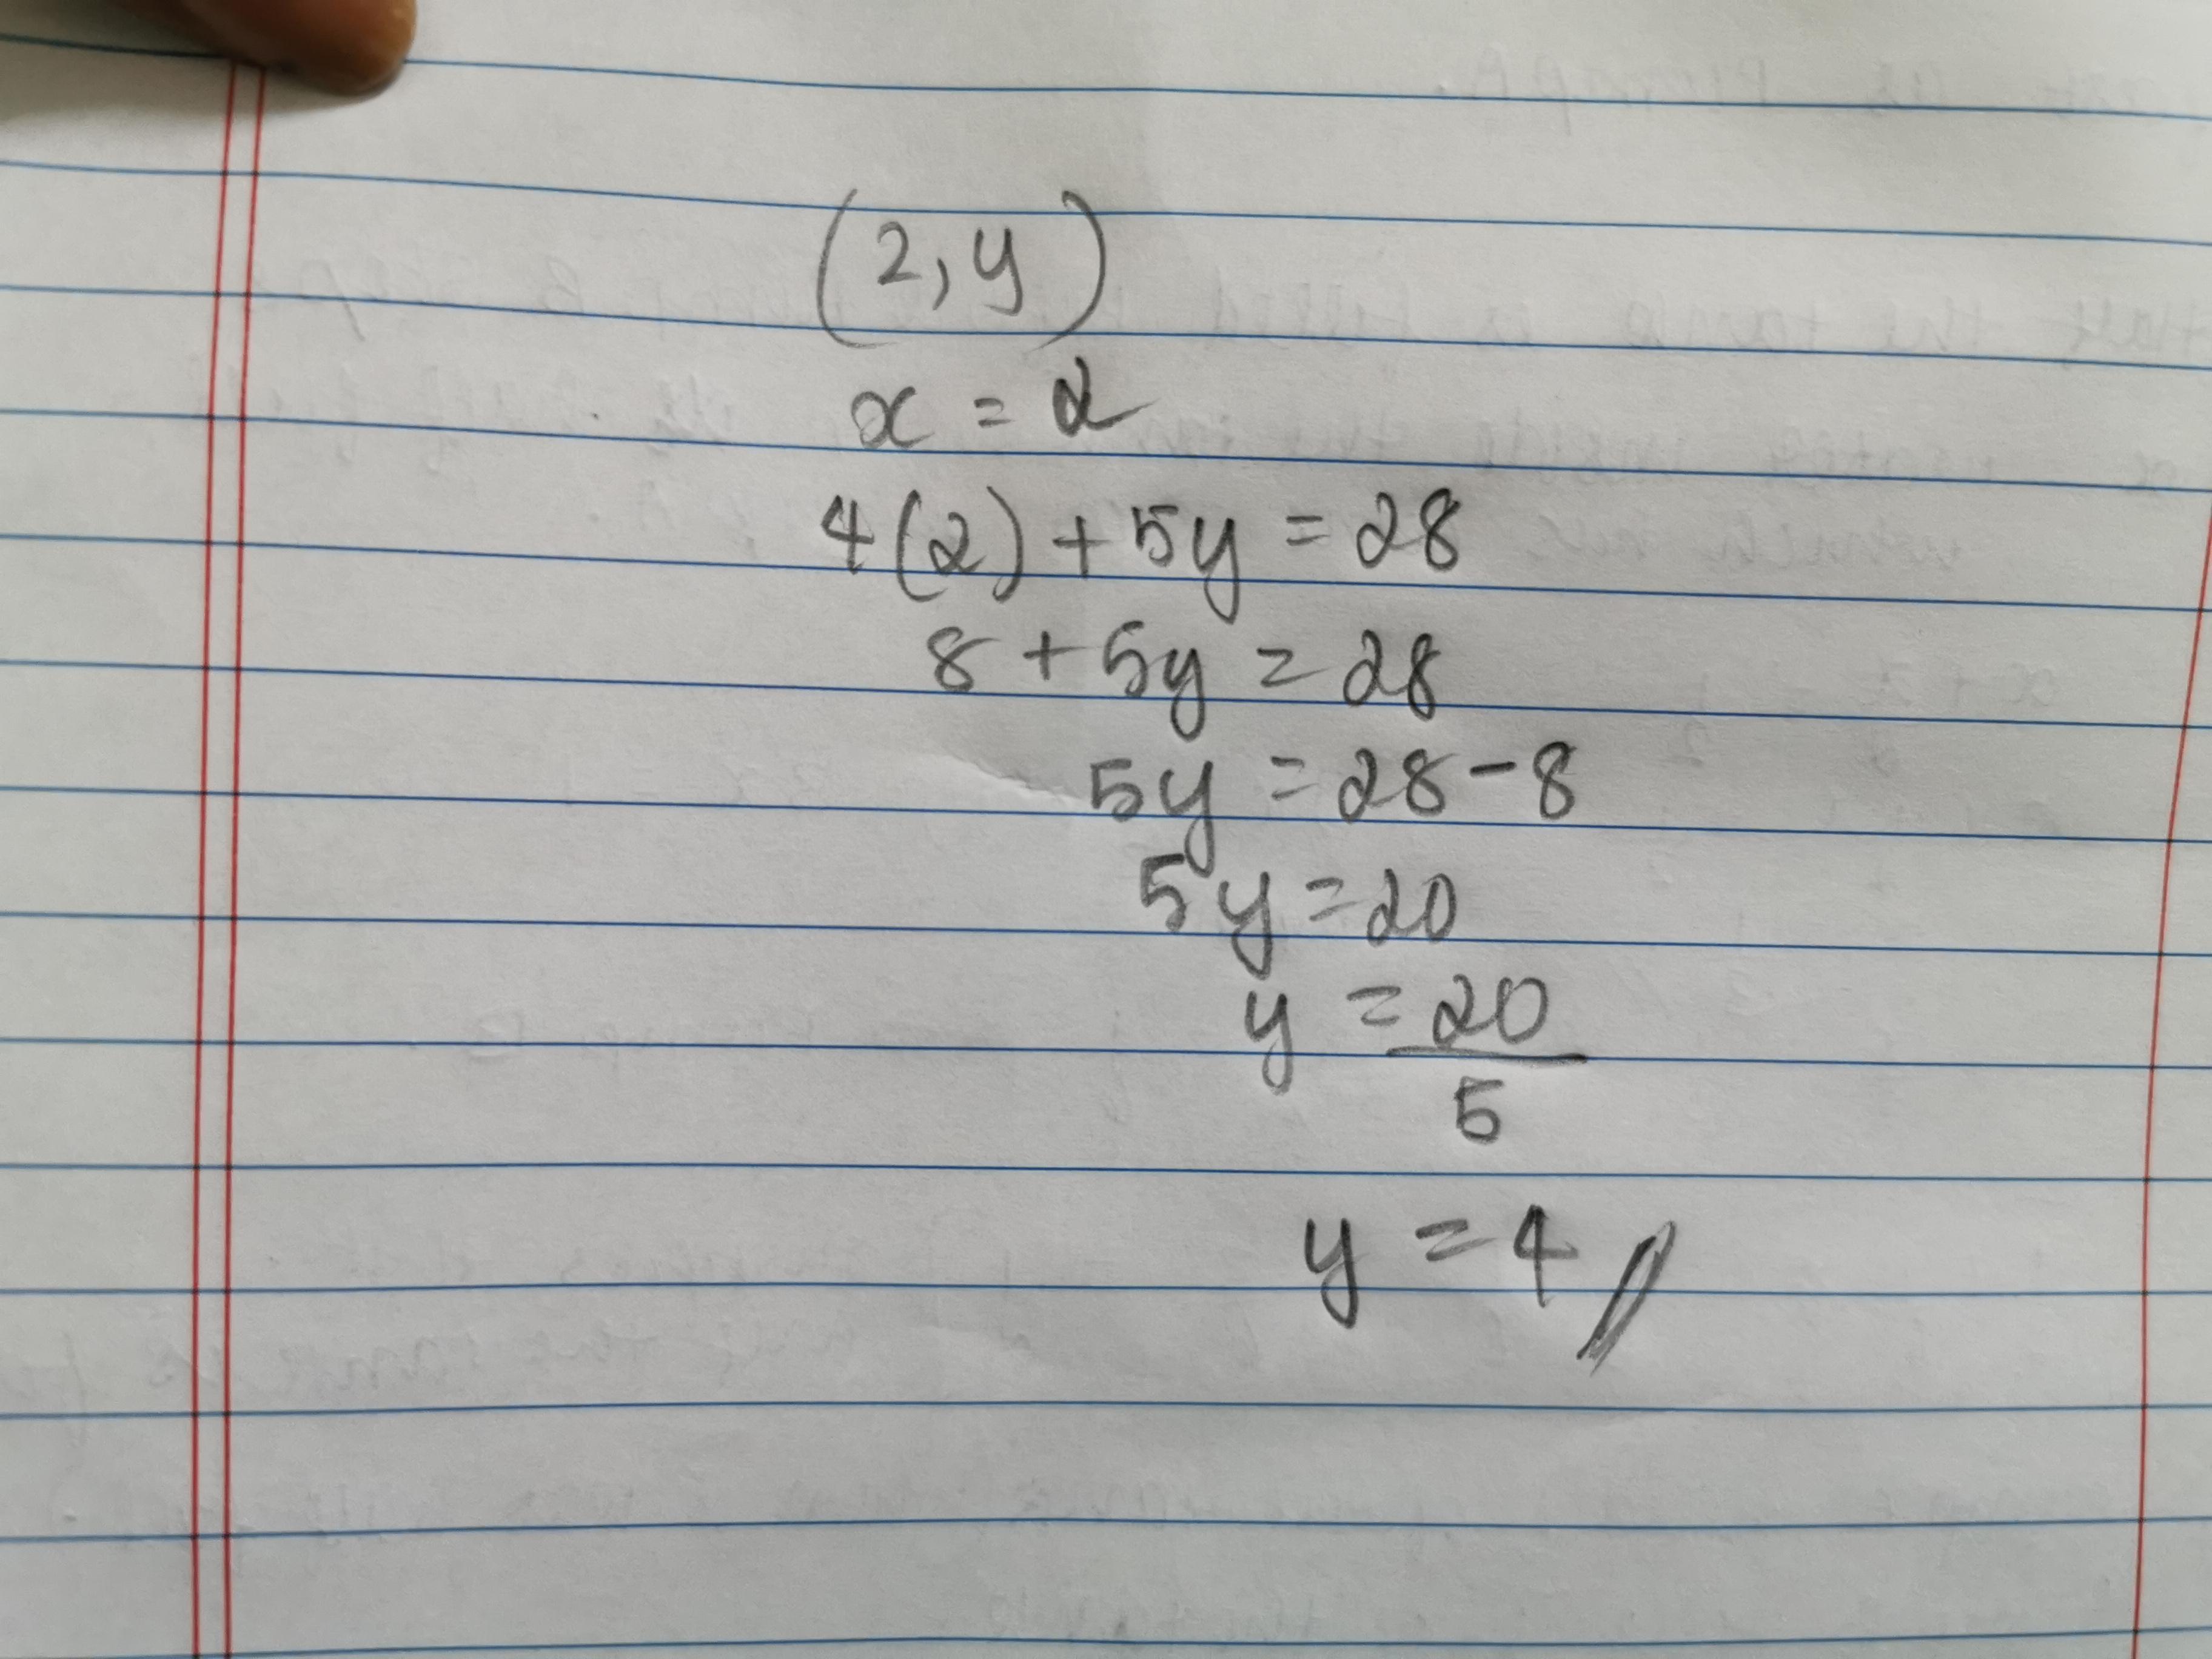 (2, y)
x = 2
4(2) + 5y = 28
8 + 5y = 28
5y = 28 - 8
5y = 20
y = 20
5
y = 4